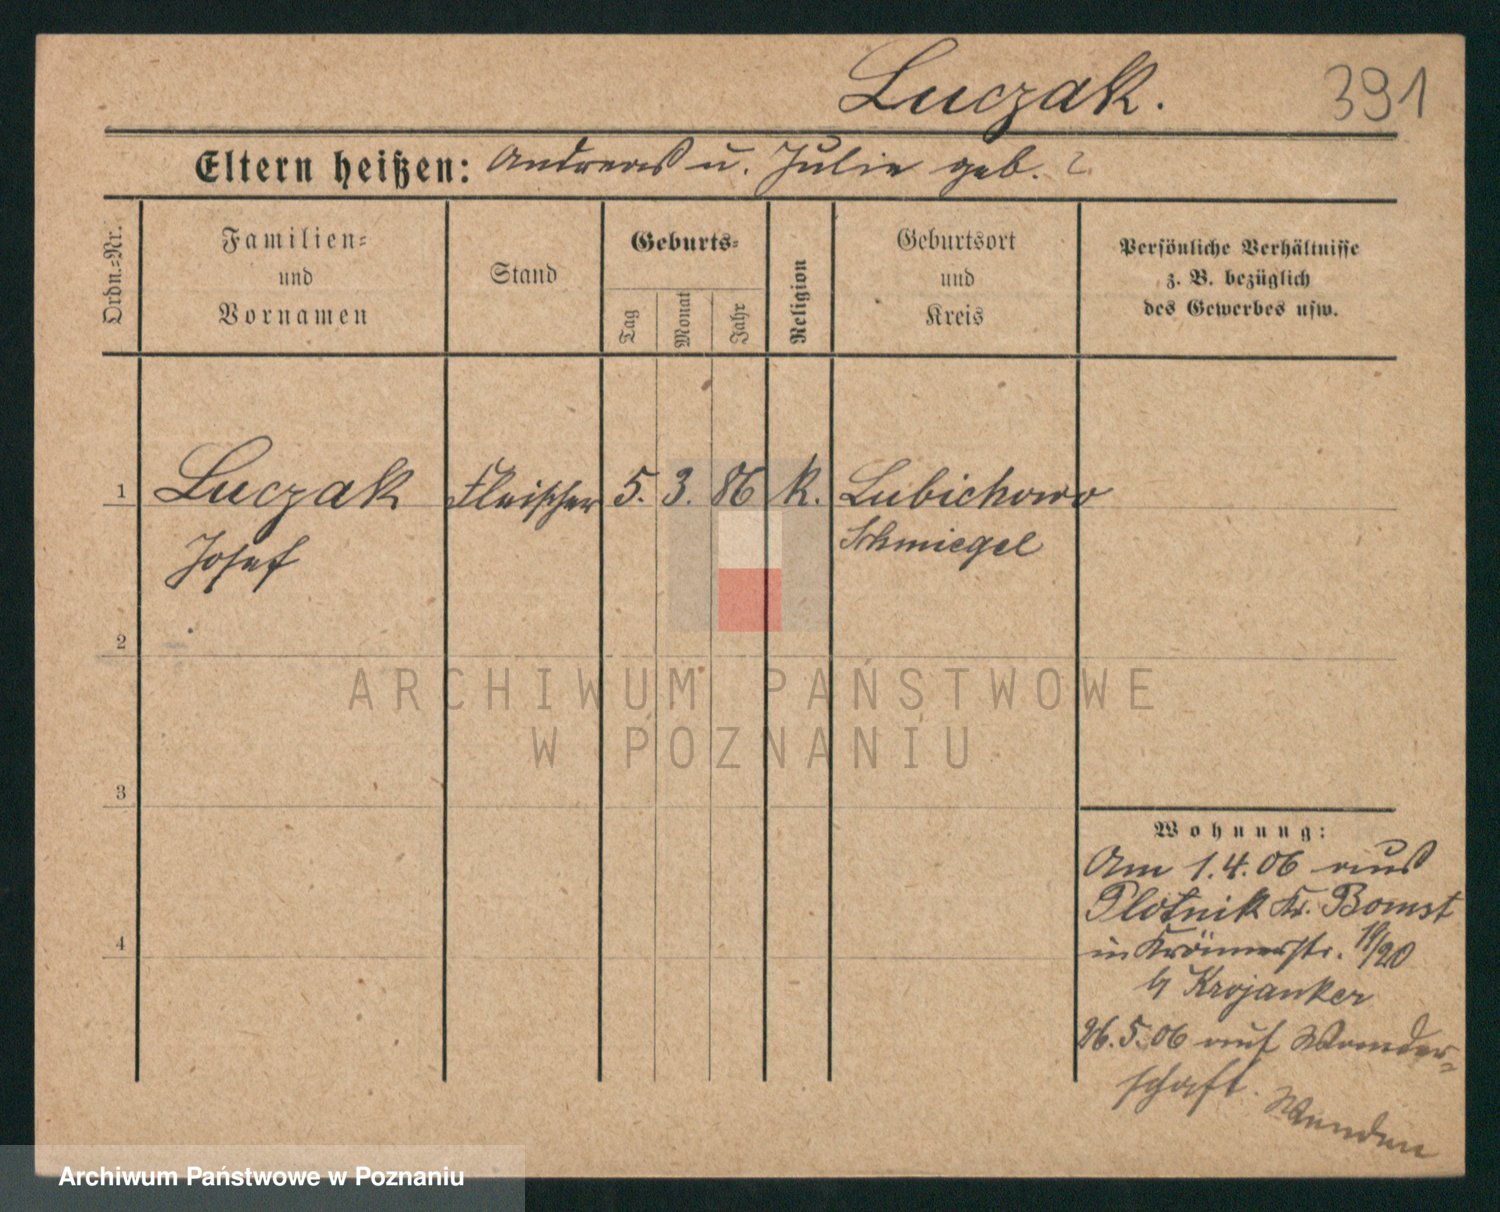 Luczak. 391
Eltern heißen: Andreas u. Julie geb. ?
Ordn.-Nr.
Familien-
und
Vornamen
Stand
Geburts-
Tag
Monat
Jahr
Religion
Geburtsort
und
Kreis
Persönliche Verhältnisse
z. B. bezüglich
des Gewerbes usw.
1 Luczak Fleischer 5. 3. 86 K. Lubichowo
Josef Schmiegel
2
3
4
Wohnung:
Am 1.4.06 aus
Plotnik Kr. Bomst
in Krämerstr. 19/20
b/ Krojanker
26.5.06 auf Wander-
schaft.
Wenden
ARCHIWUM PAŃSTWOWE
W POZNANIU
Archiwum Państwowe w Poznaniu